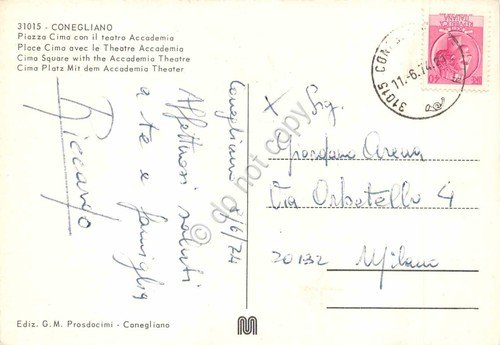 31015 - CONEGLIANO
Piazza Cima con il teatro Accademia
Place Cima avec le Theatre Accademia
Cima Square with the Accademia Theatre
Cima Platz Mit dem Accademia Theater
Conegliano 8/6/74
Affettuosi saluti
a te e famiglia
Riccardo
31015 CON
11.-6.74
Sig.
Giordano Arena
Via Orbetello 4
20132 Milano
do not copy
Ediz. G. M. Prosdocimi - Conegliano